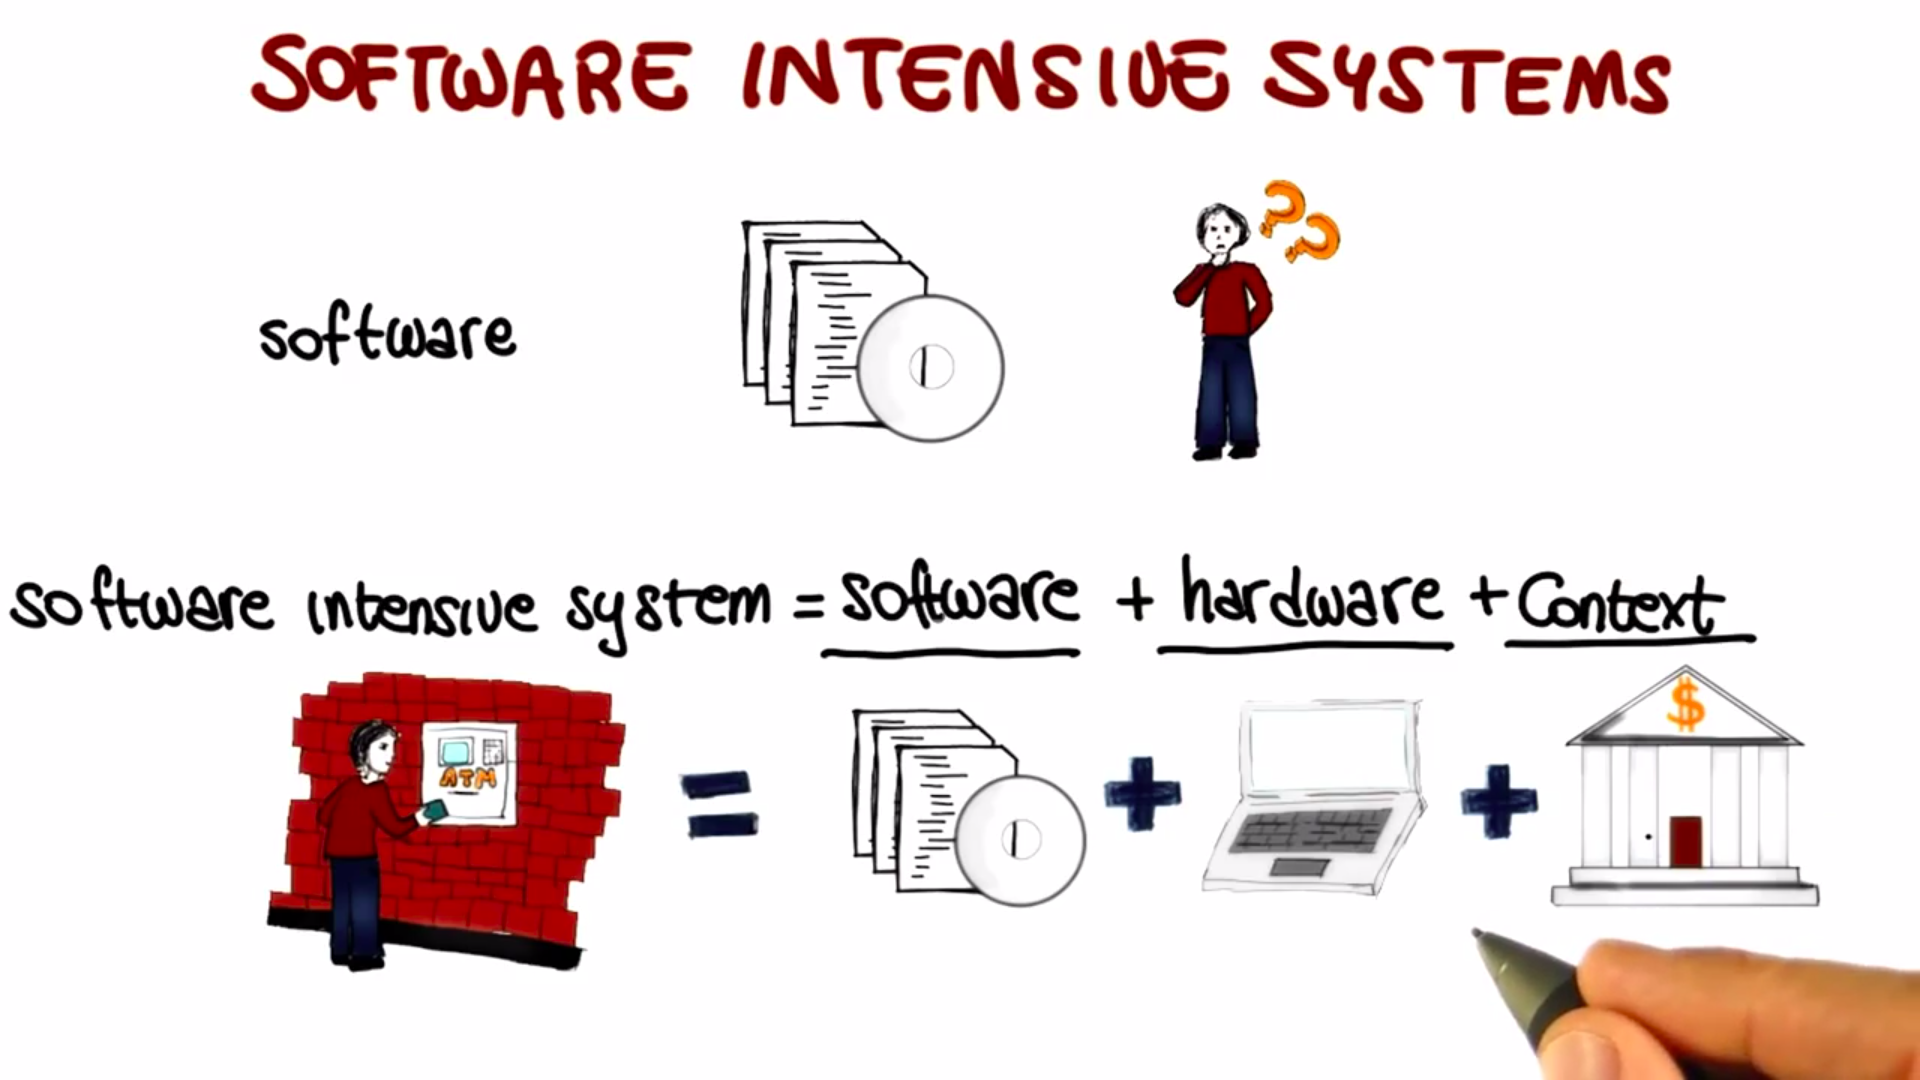 SOFTWARE INTENSIVE SYSTEMS
software
??
software intensive system = software + hardware + Context
ATM
= + +
$